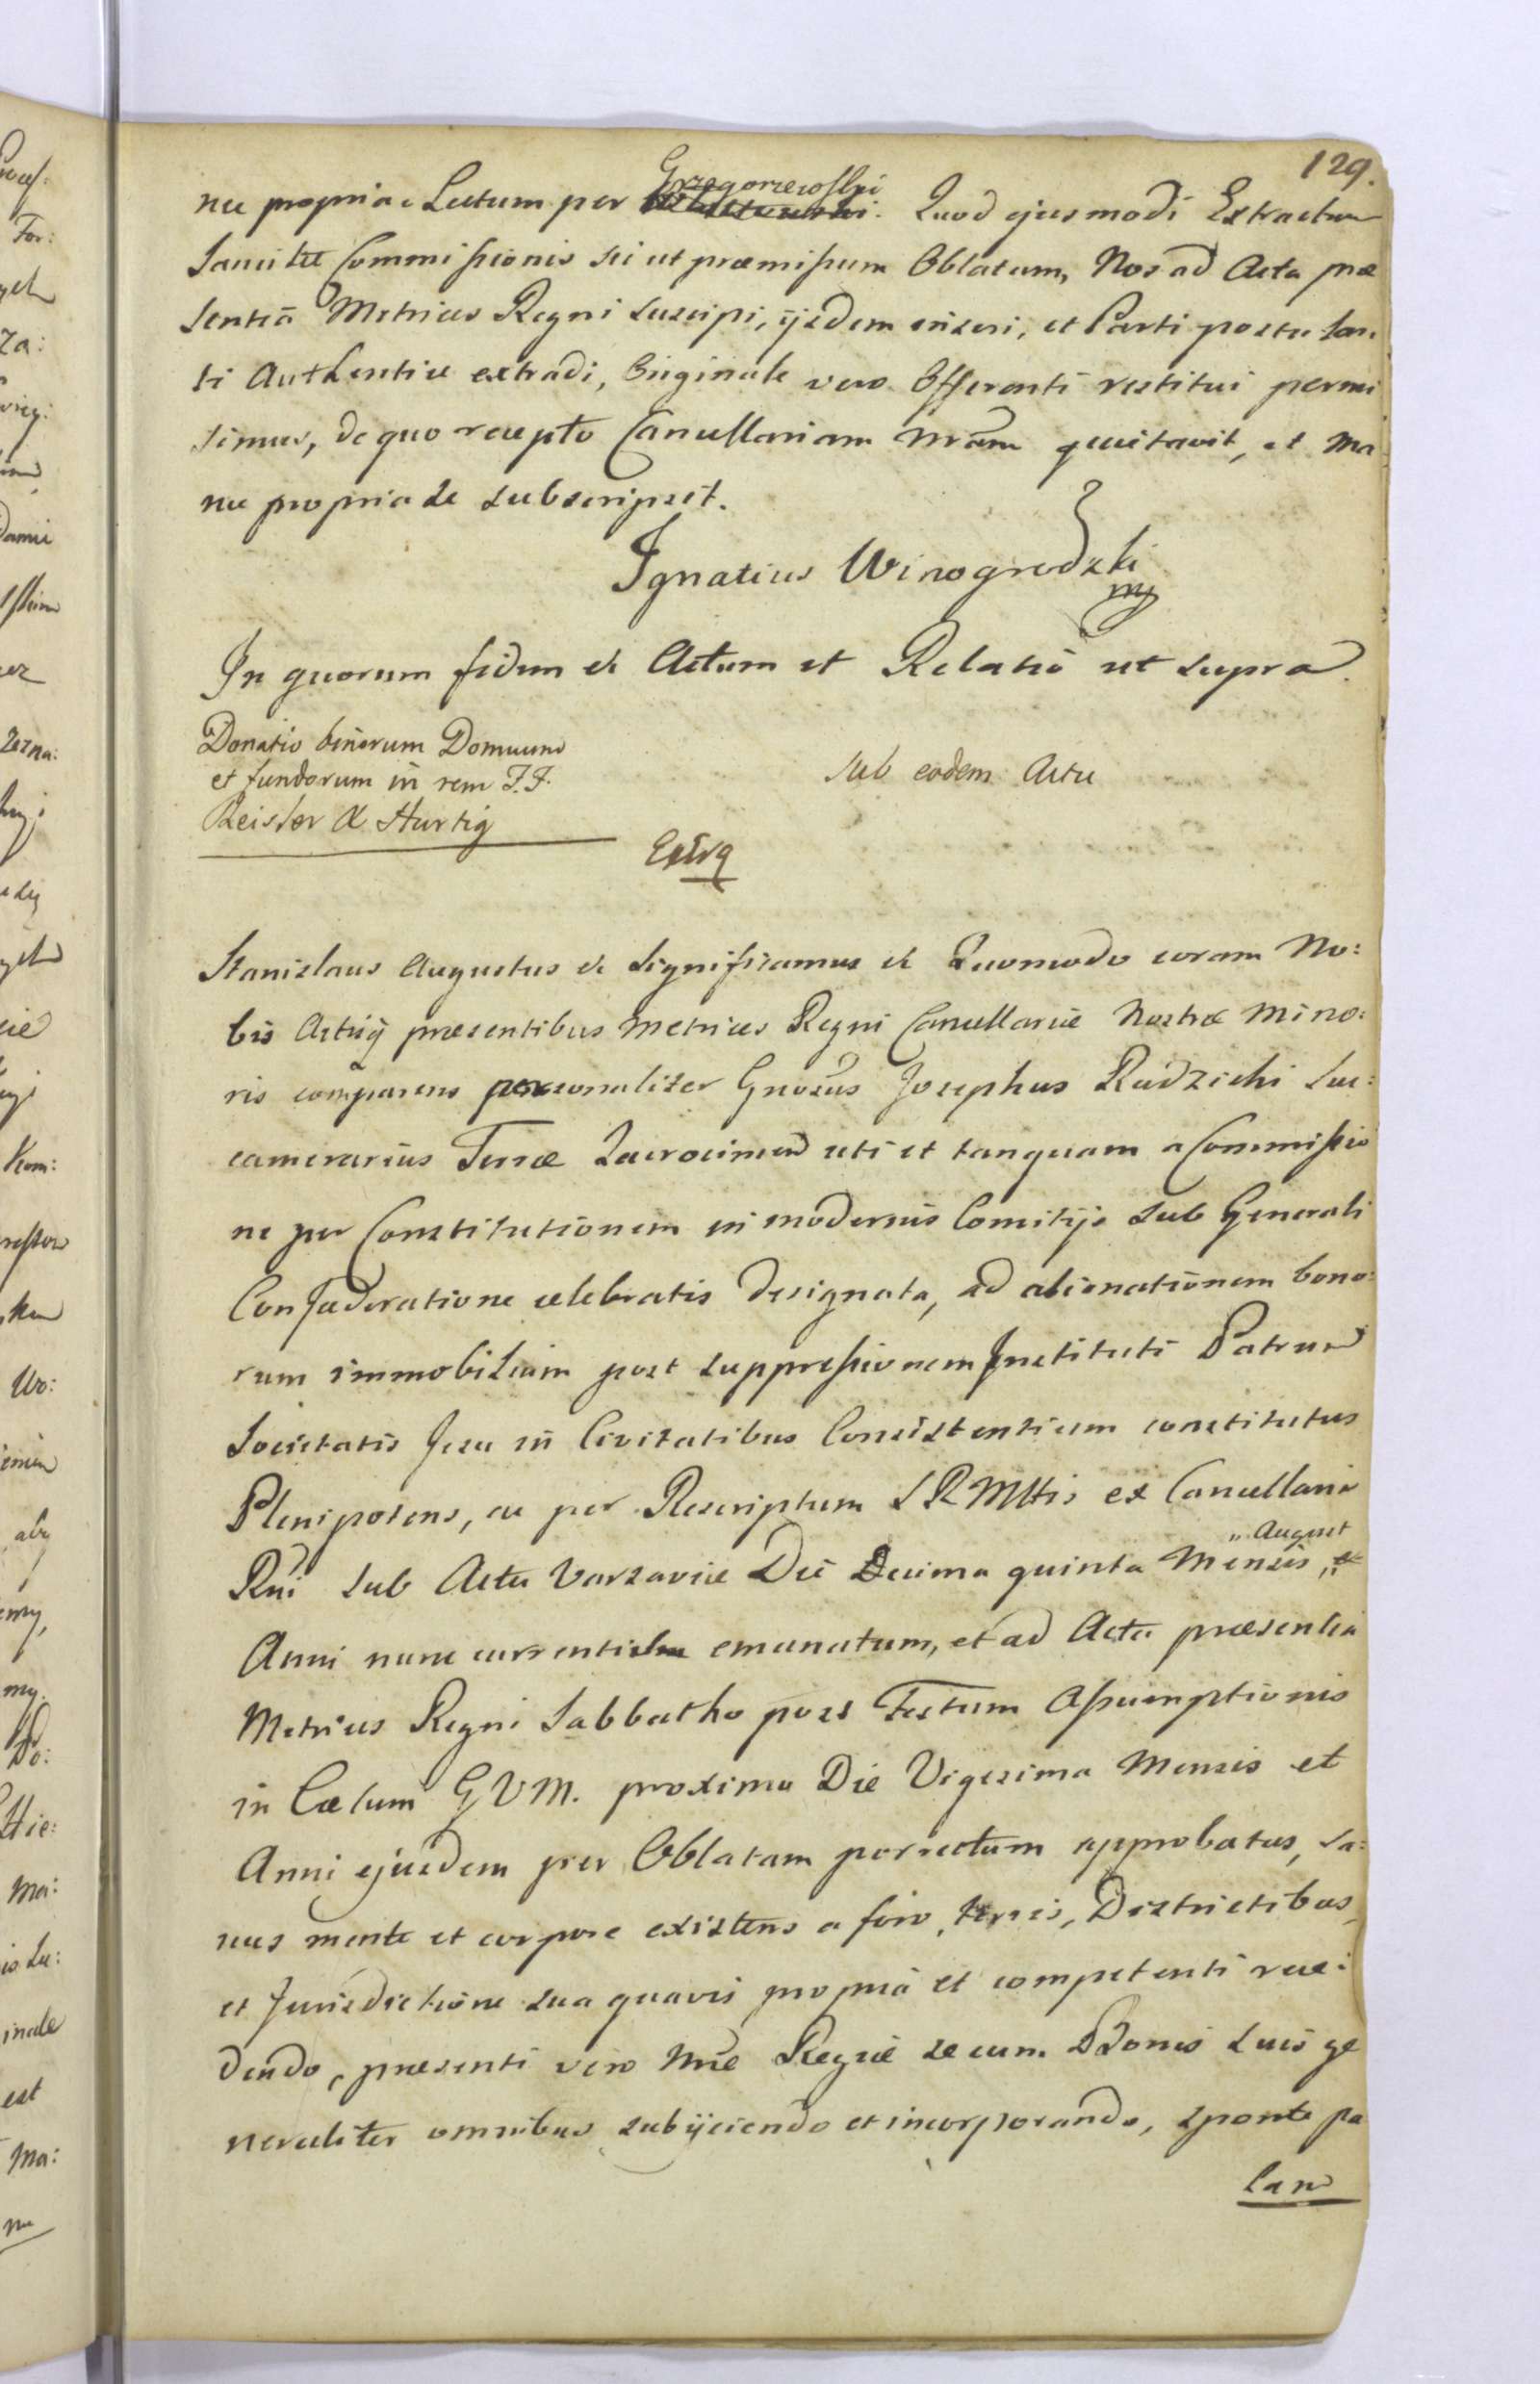 129.
nu propria. Lectum per Grzegorzewski. Quod ejusmodi Extractum
Sancitae Commissionis sic ut praemissum Oblatum, Nos ad Acta prae
sentia Metrices Regni suscipi, ijsdem inseri, et Parti postulan
ti Authentice extradi, Originale vero Offerenti restitui permi
simus, de quo recepto Cancellariam Nram quietavit, et Ma
nu propria se subscripsit.
Ignatius Winogrodzki
mp
In quorum fidem &c Actum et Relatio ut supra.
Donatio binorum Domuum
et fundorum in rem F.F.
Reisler & Hurtig
Sub eodem Actu
Extrq
Stanislaus Augustus &c Significamus &c Quomodo coram No:
bis Actisq praesentibus Metrices Regni Cancellariae Nostrae Mino:
ris comparens personaliter Gnosus Josephus Radzicki Suc:
camerarius Terrae Zacrocimen uti et tanquam a Commissio
ne per Constitutionem in modernis Comitijs sub Generali
Confaederatione celebratis designata, ad alienationem bono:
rum immobilium post suppressionem Instituti Patrum
Societatis Jesu in Civitatibus Consistentium constitutus
Plenipotens, ac per Rescriptum S R Mttis ex Cancellaria
Rni sub Actu Varsaviae Die Decima quinta Mensis „August
Anni nunc currentis emanatum, et ad Acta praesentia
Metrices Regni Sabbatho post Festum Assumptionis
in Caelum G V M. proximo Die Vigesima Mensis et
Anni ejusdem per Oblatam porrectum approbatus, sa:
nus mente et corpore existens a foro, terris, Districtibus,
et Jurisdictione sua quavis propria et competenti rece:
dendo, praesenti vero Nrae Regiae se cum Bonis suis ge
neraliter omnibus subijciendo et incorporando, sponte pa
lam